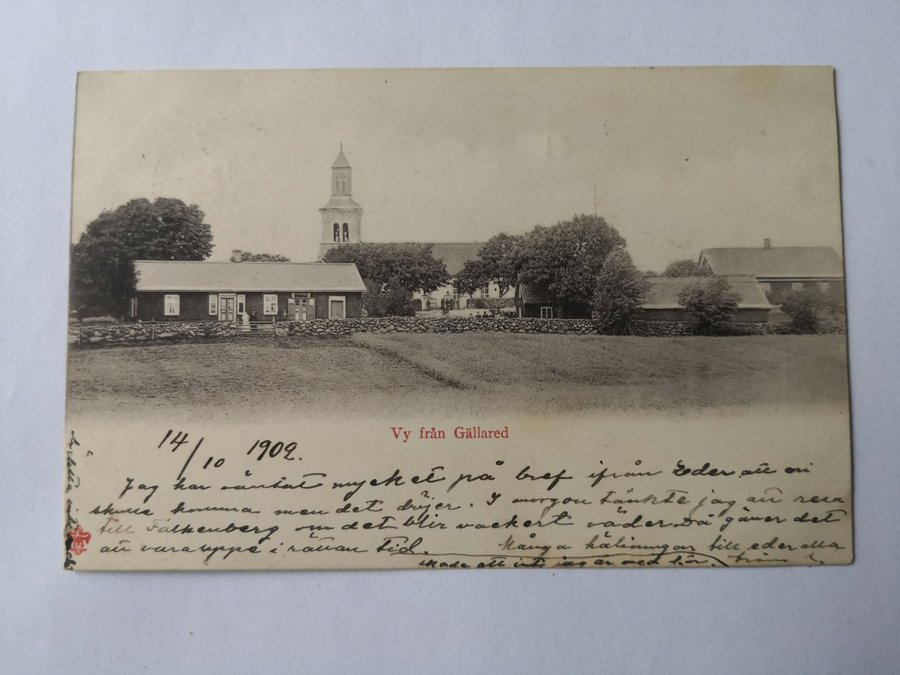 Vy från Gällared
14/10 1902.
Jag har väntat mycket på bref ifrån Eder att ni
skulle komma men det dröjer. I morgon tänkte jag att resa
till Falkenberg om det blir vackert väder. Då gäller det
att vara uppe i rättan Tid. Många hälsningar till eder alla
skada att inte jag är med här. från